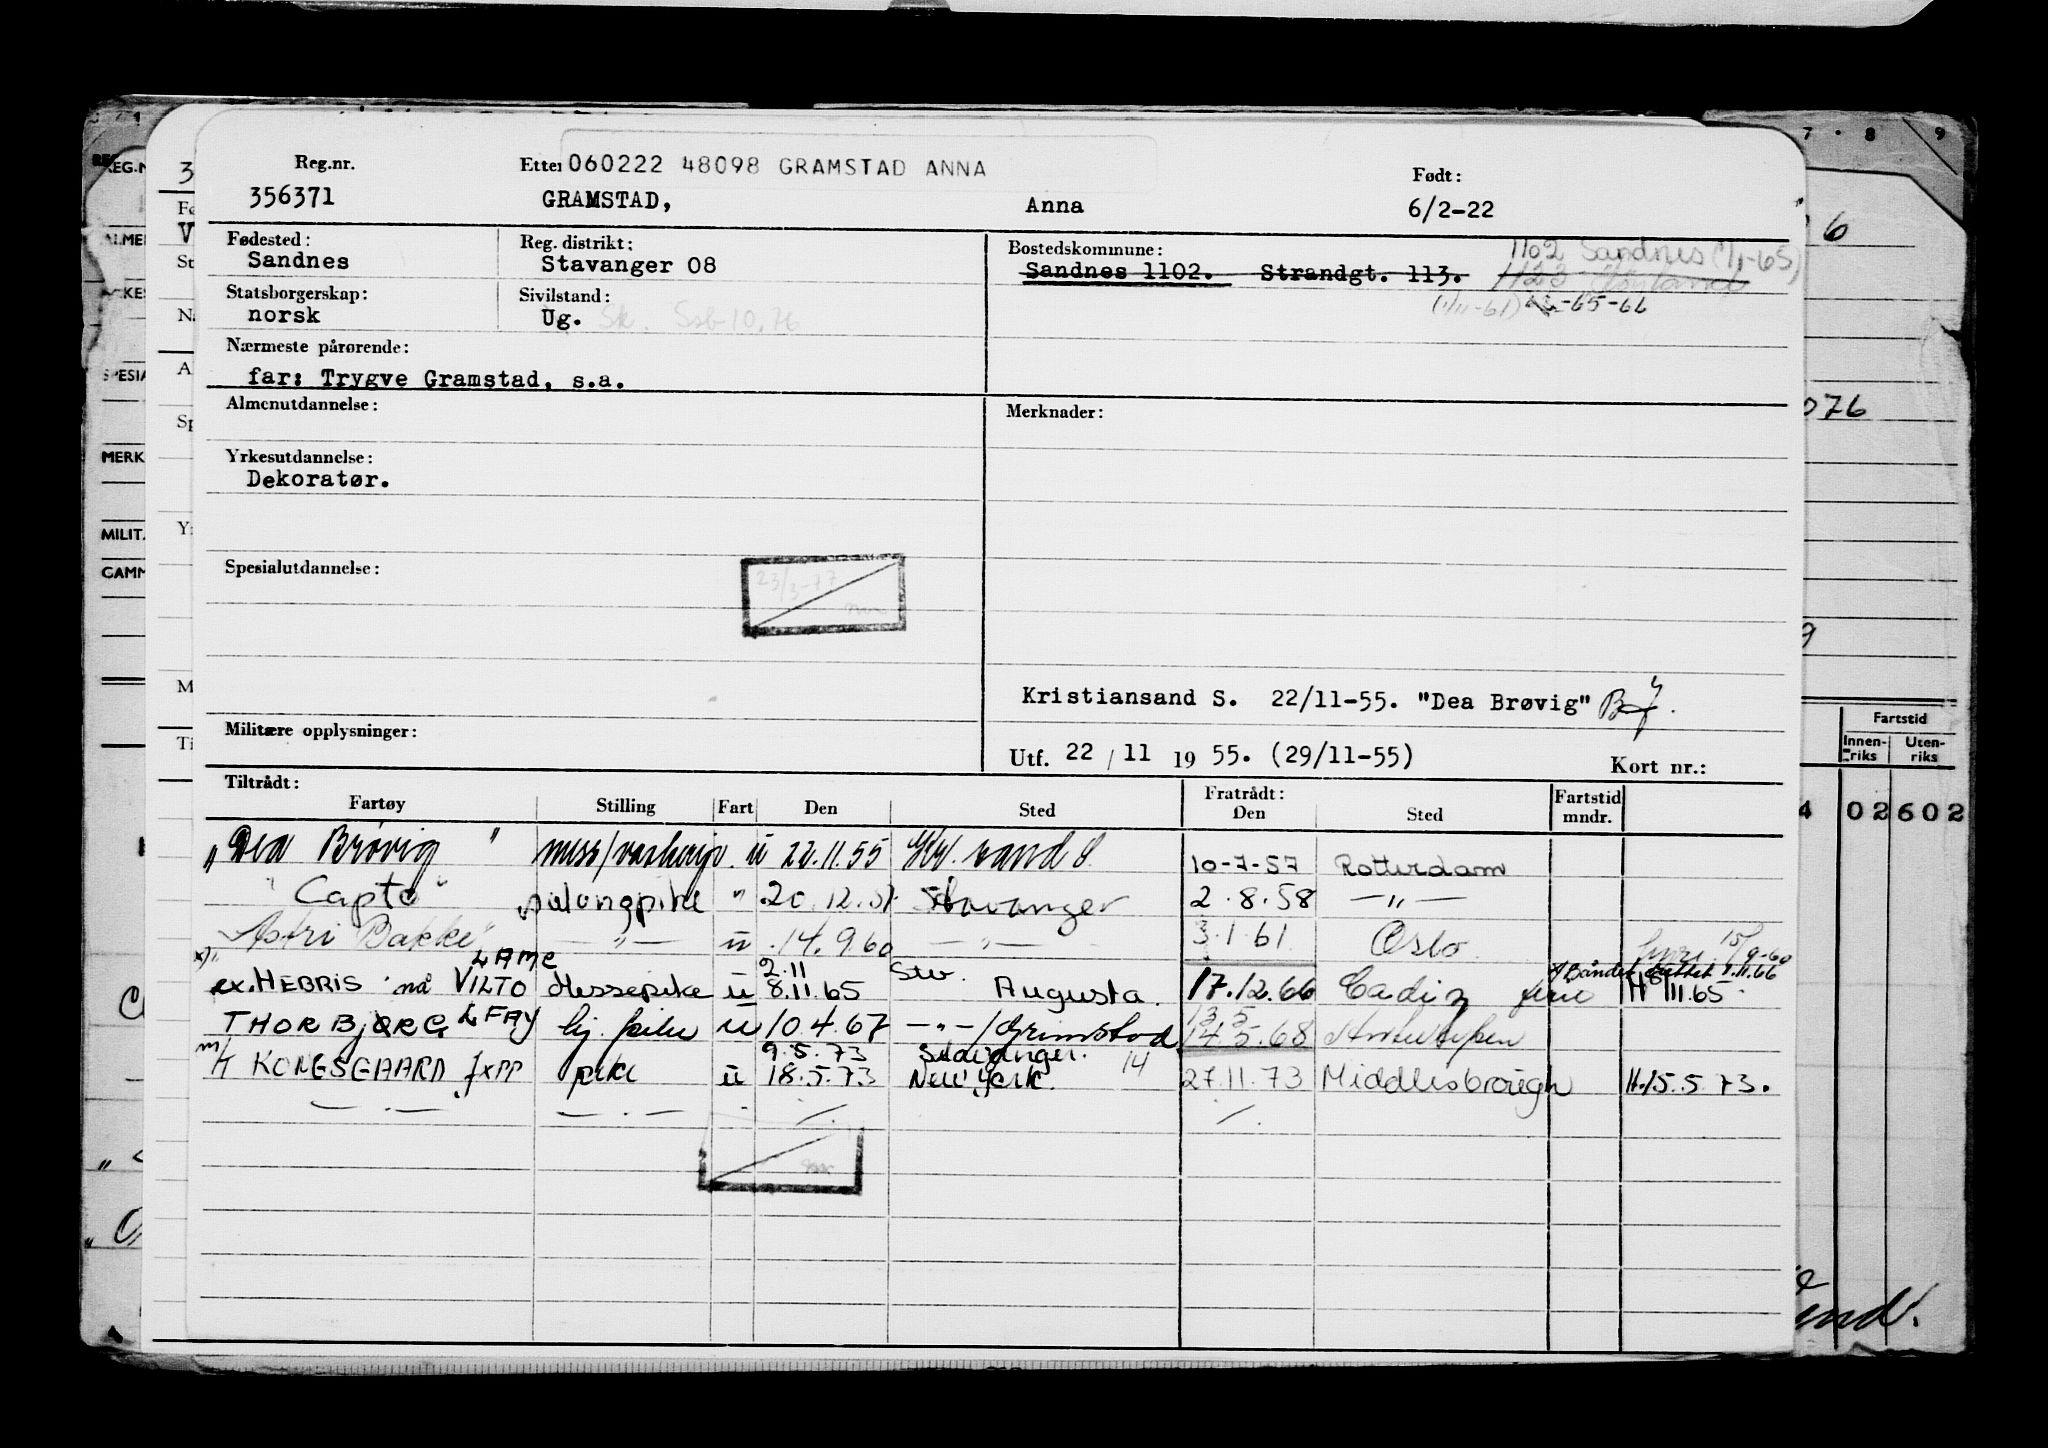 Reg.nr. Etter 060222 48098 GRAMSTAD ANNA Født:
356371 GRAMSTAD, Anna 6/2-22
Fødested: Reg. distrikt: Bostedskommune: 1102 Sandnes (1/1-65)
Sandnes Stavanger 08 Sandnes 1102. Strandgt. 113. 1123
Statsborgerskap: Sivilstand: (1/11-61) -65-66
norsk Ug. Sk. Ssb 10.76
Nærmeste pårørende:
far: Trygve Gramstad, s.a.
Almenutdannelse: Merknader:
Yrkesutdannelse:
Dekoratør.
Spesialutdannelse:
23/3-77
Kristiansand S. 22/11-55. "Dea Brøvig"
Militære opplysninger:
Utf. 22 / 11 19 55. (29/11-55) Kort nr.:
Tiltrådt: Fratrådt:
Fartøy Stilling Fart Den Sted Den Sted Fartstid mndr.
"Dea Brøvig" u 22.11.55 sand S. 10-7-57 Rotterdam
"Capto" salongpike " 20.12.57 Stavanger 2.8.58 —"—
"Astri Bakke" —"— u 14.9.60 —"— 3.1.61 Oslo 15/9-60
LAMC 2.11 Stv.
ex. HEBRIS nå VILTO Messepike u 8.11.65 Augusta. 17.12.66 Cadiz H 8/11.65
THORBJØRG LFAY u 10.4.67 —"—/Grimstad 14.5.68
9.5.73 Stavanger. 14
M/T KONGSGAARD JXPP pike u 18.5.73 New York. 27.11.73 Middlesbrough H.15.5.73.
Fartstid
Innenriks Utenriks
02 602
076
7 8 9